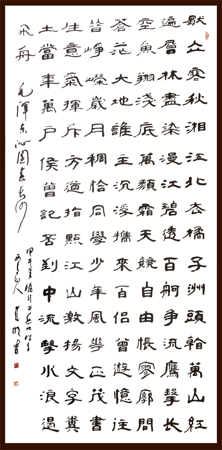 獨立寒秋湘江北去橘子洲頭看萬山紅
遍層林盡染漫江碧透百舸爭流鷹擊長
空魚翔淺底萬類霜天競自由悵寥廓問
蒼茫大地誰主沉浮攜來百侶曾遊憶往
昔崢嶸歲月稠恰同學少年風華正茂書
生意氣揮斥方遒指點江山激揚文字糞
土當年萬戶侯曾記否到中流擊水浪遏
飛舟 毛澤東沁園春長沙
甲午年